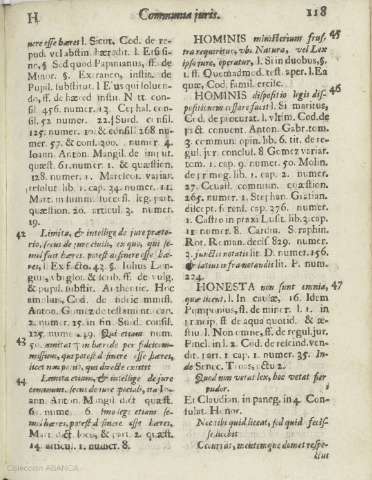 H.
Communia juris.
118
nere esse hæres l. Sicut. Cod. de re-
pud. vel abstin. hæredit. l. Et si si-
ne, § Sed quod Papinianus, ff. de
Minor. § Extraneo, instit. de
Pupil. substitut. l. Ejus qui solven-
do, ff. de hæred. instit.
sil. 456. numer. 13. Cephal. con-
sil. 52 numer. 22. Surd. consil.
125. numer. 10. & consil. 268 nu-
mer. 57. & cons. 300. numer 4.
Ioann. Anton. Mangil. de imput.
quæst. 61. numer. 1. & quæstion.
128. numer. 1. Marescot. variar.
resolut. lib. 1. cap. 34. numer. 11.
Mart. in summ. success. leg. part.
quæstion. 20. articul. 3. numer.
19.
42
Limita, & intellige de jure præto-
rio, secus de jure civili, ex quo, qui se-
mel fuit hæres, potest desinere esse hæ-
res, l. Ex facto. 43. §. Iulius Lon-
gus, ubi glos. & scrib. ff. de vulg.
& pupill. substit.
Cod. de
Anton. Gomez de testament. cap.
2. numer. 25. in fin. Surd. consil.
125. numer. 49. Quod etiam num.
43
50. limitat in hærede per fideicom-
missum, qui potest desinere esse hæres,
licet non possit, qui directe extitit.
44
Limita etiam, & intellige de jure
communi, secus de jure speciali, ita Io-
ann. Anton. Mangil. dict. quæst.
61. nume. 6. imo leges etiam se-
mel hæres, potest desinere esse hæres,
Mart. dict. locus, & part. 2. quæst.
14. articul. 1. numer. 8.
HOMINIS ministerium frus-
45
tra requiritur, ubi Natura, vel Lex
ipso jure, operatur, l. Si in duobus, §.
1. ff. Quemadmod. test. aper. l. Ea
quæ, Cod. famil. ercisc.
46
HOMINIS dispositio legis dis-
positionem cessare facit l. Si maritus,
Cod. de procurat. l. ultim. Cod. de
pact. convent. Anton. Gabr. tom.
3. commun. opin. lib. 6. tit. de re-
gul. jur. conclus. 8 Gomez variar.
tom. 1. cap. 9. numer. 50. Molin.
de primog. lib. 1. cap. 2. numer.
27. Cevall. commun. quæstion.
265. numer. 1. Stephan. Gratian.
discept. forens. cap. 276. numer.
1. Castro in praxi Lusit. lib. 3. cap.
numer. 8. Cardin. Seraphin.
Rot. Roman. decis. 829. numer.
2. juncta notatis lit. D. numer. 156.
& latius infra notandis lit. P. num.
224.
HONESTA non sunt omnia,
47
quæ licent, l. In causæ, 16. Idem
Pomponius, ff. de minor. l. 1. in
princip. ff. de aqua quotid. & æs-
tiv. l. Non omne, ff. de regul. jur.
Pinel. in l. 2. Cod. de rescind. ven-
dit. part. 1 cap. 1. numer. 35. In-
de Senec. Troas, actu 2.
Quod non vetat lex, hoc vetat fieri
pudor.
Et Claudian. in paneg. in 4. Con-
sulat. Honor.
Nec tibi quid liceat, sed quid fecis-
se licebit
Occurrat, mentemque domet respe-
ctus
Colección ABANCA